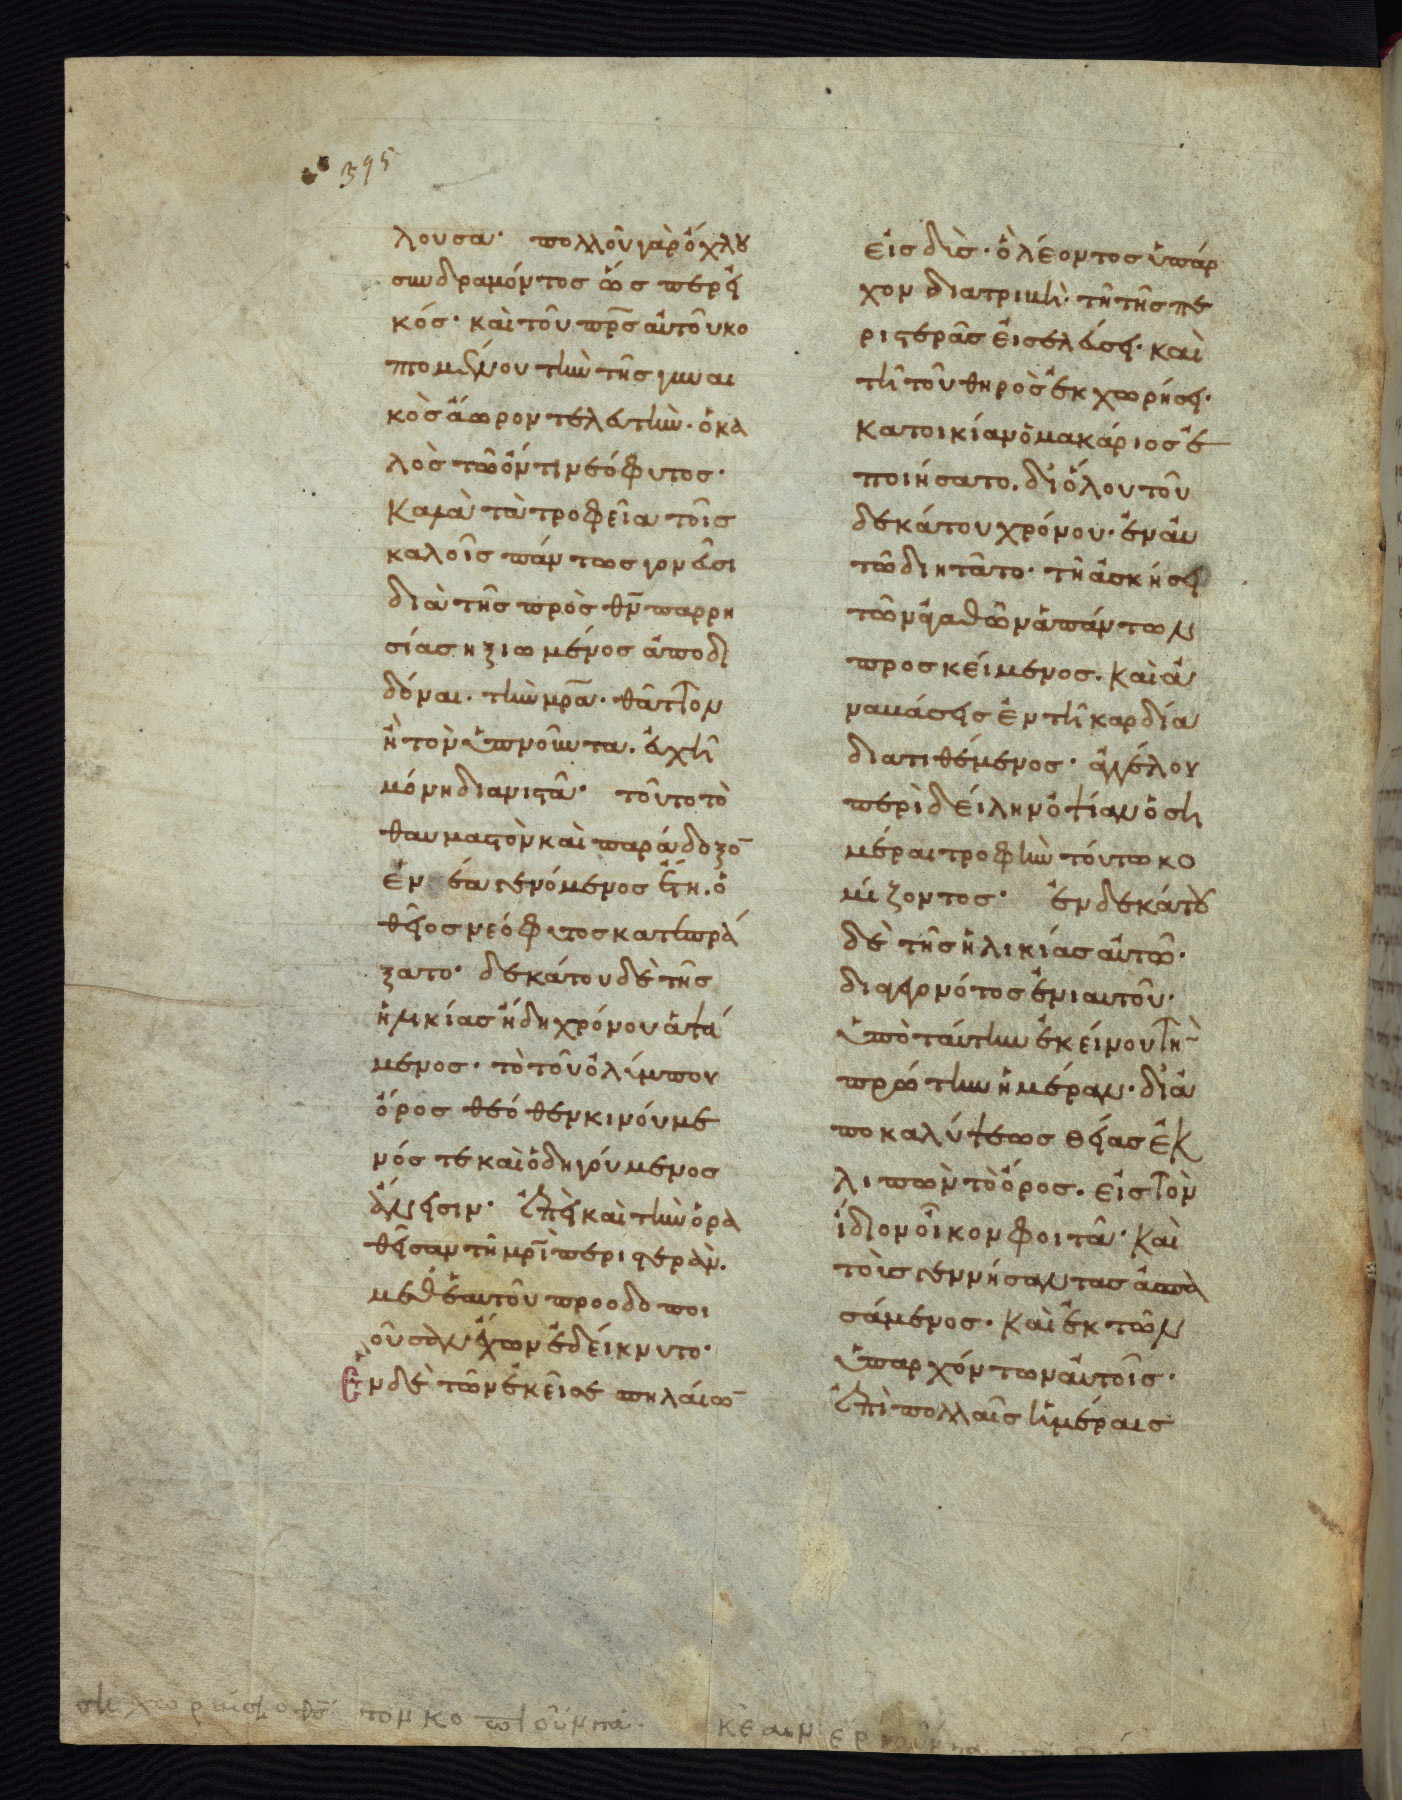 395
λουσα· πολλοῦ γὰρ ὄχλου
συνδραμόντος ὥσπερ εἰ
κός· καὶ τοῦ πρς αὐτοῦ κο
πομένου τὴν τῆς γυναι
κὸς ἄωρον τελευτὴν· ὁ κα
λὸς τῶ ὄντι νεόφυτος·
καινὰ τὰ τροφεῖα τοῖς
καλοῖς πάντως γονεῦσι
διὰ τῆς πρὸς θν παρρη
σίας ἠξιωμένος ἀποδι
δόναι· τὴν μρα· θᾶττον
ἢ τὸν ὑπνοῦντα. εὐχῆ
μόνη διανιστᾶ· τοῦτο τὸ
θαυμαστὸν καὶ παράδοξο
ἐν έα γενόμενος ἔτη. ὁ
θεῖος νεόφυτος κατεπρά
ξατο· δεκάτου δὲ τῆς
ἡλικίας ἤδη χρόνου ἁψά
μενος· τὸ τοῦ ὀλύμπου
ὄρος θεόθεν κινούμε
νός τε καὶ ὁδηγούμενος
ἄνεισιν· ἐπεὶ καὶ τὴν ὁρα
θεῖσαν τῆ μρι περιστερὰν.
μεθ ἑαυτοῦ προοδοποι
οῦσαν ἔχων ἐδείκνυτο·
Ἐν δὲ τῶν ἐκεῖσε σπηλαίω
εἰσδὺς· ὃ λέοντος ὑπάρ
χον διατριβὴ· τῆ τῆς πε
ριστερᾶς εἰσελάσει· καὶ
τῆ τοῦ θηρὸς ἐκχωρήσει·
κατοικίαν ὁ μακάριος ἐ
ποιήσατο. δι ὅλου τοῦ
δεκάτου χρόνου· ἐν αὐ
τῶ διητᾶτο· τῆ ἀσκήσει
τῶν ἀγαθῶν ἁπάντων
προσκείμενος. καὶ ἀ
ναβάσεις ἐν τῆ καρδία
διατιθέμενος· ἀγγέλου
περὶ δείλην ὀψίαν ὁση
μέραι τροφὴν τούτω κο
μίζοντος· ἑνδεκάτου
δὲ τῆς ἡλικίας αὐτῶ·
διαγεγονότος ἐνιαυτοῦ·
ὑπὸ ταύτην ἐκείνου τὴν
πρώτην ἡμέραν· δι ἀ
ποκαλύψεως θείας ἐκ
λιπὼν τὸ ὄρος. εἰς τὸν
ἴδιον οἶκον φοιτᾶ· καὶ
τοὺς γεννήσαντας ἀσπα
σάμενος· καὶ ἐκ τῶν
ὑπαρχόντων αὐτοῖς·
ἐπὶ πολλαῖς ἡμέραις